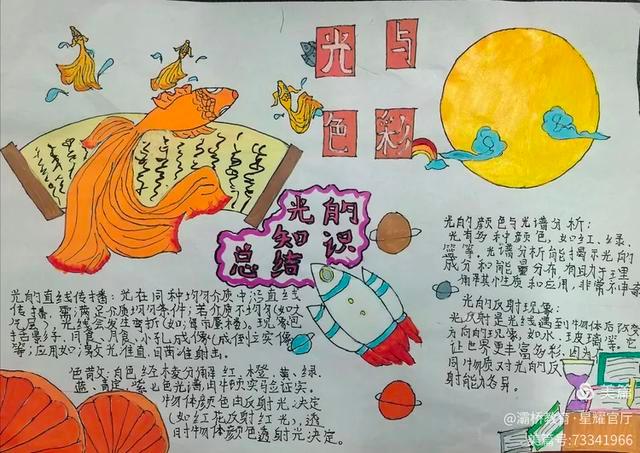 光与
色彩
光的
知识
总结
光的直线传播：光在同种均匀介质中沿直线
传播，需满足介质均匀条件；若介质不均匀(如大
气层)，光线会发生弯折(如海市蜃楼)。现象包
括影子、月食、日食、小孔成像(成倒立实像
等；应用如：激光准直、日
色散：白色经棱镜分解红、橙、黄、绿、
物体颜色由反射光决定
(如红花反射红光)，透
明物体颜色透射光决定。
光的颜色与光谱分析：
光有多种颜色，如红、绿、
蓝等，光谱分析能揭示光的
成分和能量分布，有助于
用其性质和应用，非常
光的反射现象：
光反射是光线遇到物体后改变
方向的现象，如水、玻璃等。它
让世界更丰富多彩，因为
同物体对光的反
射能力各异。
美篇
@灞桥教育·星耀官厅
美篇号:73341966